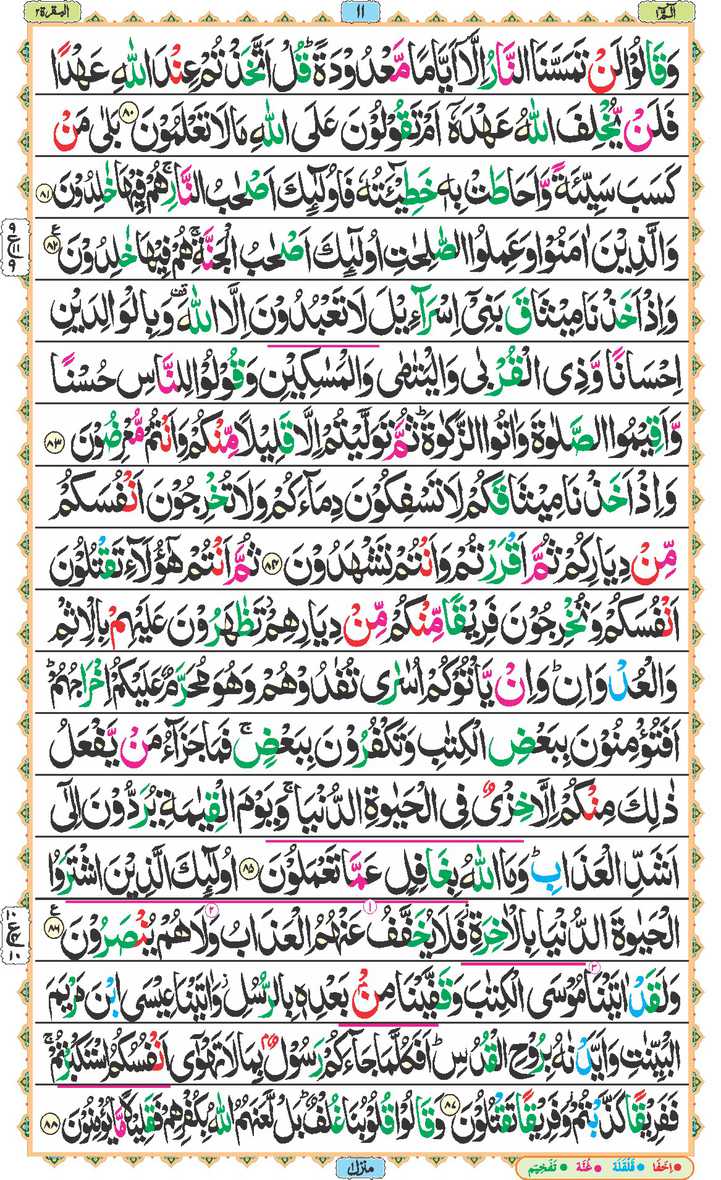 الٓمّٓ ۱
۱۱
البقرة ۲
وَقَالُوْا لَنْ تَمَسَّنَا النَّارُ اِلَّاۤ اَيَّامًا مَّعْدُوْدَةً ؕ قُلْ اَتَّخَذْتُمْ عِنْدَ اللّٰهِ عَهْدًا
فَلَنْ يُّخْلِفَ اللّٰهُ عَهْدَهٗۤ اَمْ تَقُوْلُوْنَ عَلَى اللّٰهِ مَا لَا تَعْلَمُوْنَ ۸۰ بَلٰى مَنْ
كَسَبَ سَيِّئَةً وَّاَحَاطَتْ بِهٖ خَطِيْٓئَتُهٗ فَاُولٰٓئِكَ اَصْحٰبُ النَّارِ ۚ هُمْ فِيْهَا خٰلِدُوْنَ ۸۱
وَالَّذِيْنَ اٰمَنُوْا وَعَمِلُوا الصّٰلِحٰتِ اُولٰٓئِكَ اَصْحٰبُ الْجَنَّةِ ۚ هُمْ فِيْهَا خٰلِدُوْنَ ۸۲ ع
وَاِذْ اَخَذْنَا مِيْثَاقَ بَنِىْٓ اِسْرَآءِيْلَ لَا تَعْبُدُوْنَ اِلَّا اللّٰهَ ۫ وَبِالْوَالِدَيْنِ
اِحْسَانًا وَّذِى الْقُرْبٰى وَالْيَتٰمٰى وَالْمَسٰكِيْنِ وَقُوْلُوْا لِلنَّاسِ حُسْنًا
وَّاَقِيْمُوا الصَّلٰوةَ وَاٰتُوا الزَّكٰوةَ ؕ ثُمَّ تَوَلَّيْتُمْ اِلَّا قَلِيْلًا مِّنْكُمْ وَاَنْتُمْ مُّعْرِضُوْنَ ۸۳
وَاِذْ اَخَذْنَا مِيْثَاقَكُمْ لَا تَسْفِكُوْنَ دِمَآءَكُمْ وَلَا تُخْرِجُوْنَ اَنْفُسَكُمْ
مِّنْ دِيَارِكُمْ ثُمَّ اَقْرَرْتُمْ وَاَنْتُمْ تَشْهَدُوْنَ ۸۴ ثُمَّ اَنْتُمْ هٰٓؤُلَآءِ تَقْتُلُوْنَ
اَنْفُسَكُمْ وَتُخْرِجُوْنَ فَرِيْقًا مِّنْكُمْ مِّنْ دِيَارِهِمْ ۫ تَظٰهَرُوْنَ عَلَيْهِمْ بِالْاِثْمِ
وَالْعُدْوَانِ ؕ وَاِنْ يَّاْتُوْكُمْ اُسٰرٰى تُفٰدُوْهُمْ وَهُوَ مُحَرَّمٌ عَلَيْكُمْ اِخْرَاجُهُمْ ؕ
اَفَتُؤْمِنُوْنَ بِبَعْضِ الْكِتٰبِ وَتَكْفُرُوْنَ بِبَعْضٍ ۚ فَمَا جَزَآءُ مَنْ يَّفْعَلُ
ذٰلِكَ مِنْكُمْ اِلَّا خِزْىٌ فِى الْحَيٰوةِ الدُّنْيَا ۚ وَيَوْمَ الْقِيٰمَةِ يُرَدُّوْنَ اِلٰٓى
اَشَدِّ الْعَذَابِ ؕ وَمَا اللّٰهُ بِغَافِلٍ عَمَّا تَعْمَلُوْنَ ۸۵ اُولٰٓئِكَ الَّذِيْنَ اشْتَرَوُا
الْحَيٰوةَ الدُّنْيَا بِالْاٰخِرَةِ ۫ فَلَا يُخَفَّفُ عَنْهُمُ الْعَذَابُ وَلَا هُمْ يُنْصَرُوْنَ ۸۶ ع
وَلَقَدْ اٰتَيْنَا مُوْسَى الْكِتٰبَ وَقَفَّيْنَا مِنْۢ بَعْدِهٖ بِالرُّسُلِ ۫ وَاٰتَيْنَا عِيْسَى ابْنَ مَرْيَمَ
الْبَيِّنٰتِ وَاَيَّدْنٰهُ بِرُوْحِ الْقُدُسِ ؕ اَفَكُلَّمَا جَآءَكُمْ رَسُوْلٌۢ بِمَا لَا تَهْوٰٓى اَنْفُسُكُمُ اسْتَكْبَرْتُمْ ۚ
فَفَرِيْقًا كَذَّبْتُمْ ۫ وَفَرِيْقًا تَقْتُلُوْنَ ۸۷ وَقَالُوْا قُلُوْبُنَا غُلْفٌ ؕ بَلْ لَّعَنَهُمُ اللّٰهُ بِكُفْرِهِمْ فَقَلِيْلًا مَّا يُؤْمِنُوْنَ ۸۸
منزل ۱
اِخفَا قَلْقَلَة غُنَّة تَفْخِيْم